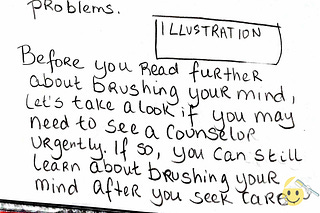 problems.
ILLUSTRATION
Before you Read further
about brushing your mind,
let's take a look if you may
need to see a counselor
urgently. If so, you can still
learn about brushing your
mind after you seek care